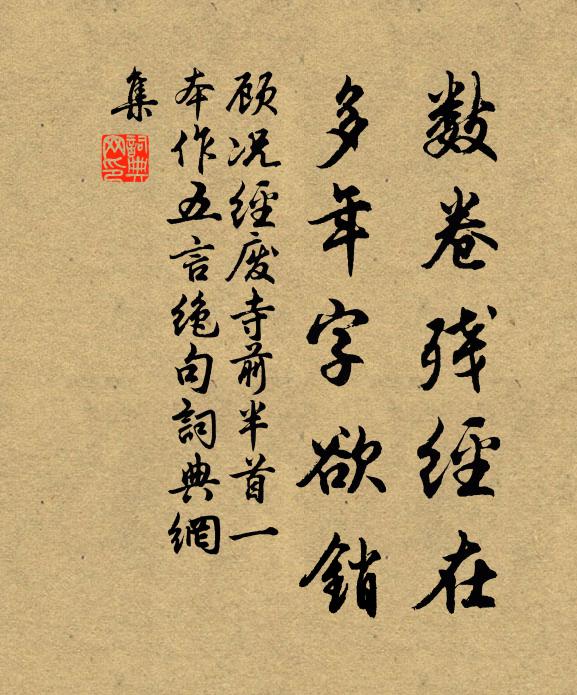 数卷残經在
多年字欲銷
顾况經废寺前半首一
本作五言绝句詞典網
集
詞典
网印